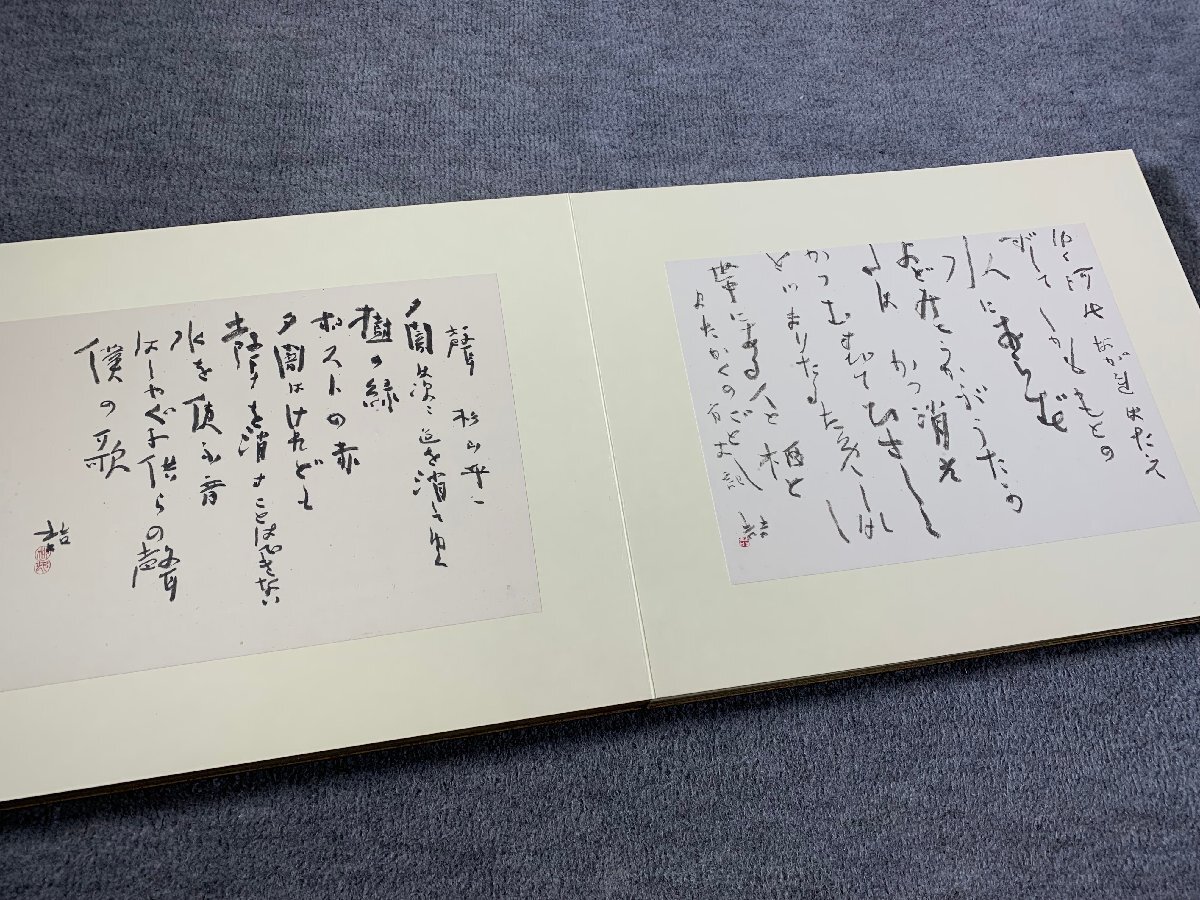 ゆく河のながれはたえ
ずしてしかももとの
水にあらず
よどみにうかぶうたか
たはかつ消え
かつむすびてひさしく
とゞまりたるためしなし
世中にある人と栖と
またかくのごとし 方丈記
聲 杉山平一
夕闇は次々色を消してゆく
樹の緑
ポストの赤
夕闇はけれども
聲を消すことはできない
水を使ふ音
はしやぐ子供らの聲
僕の歌